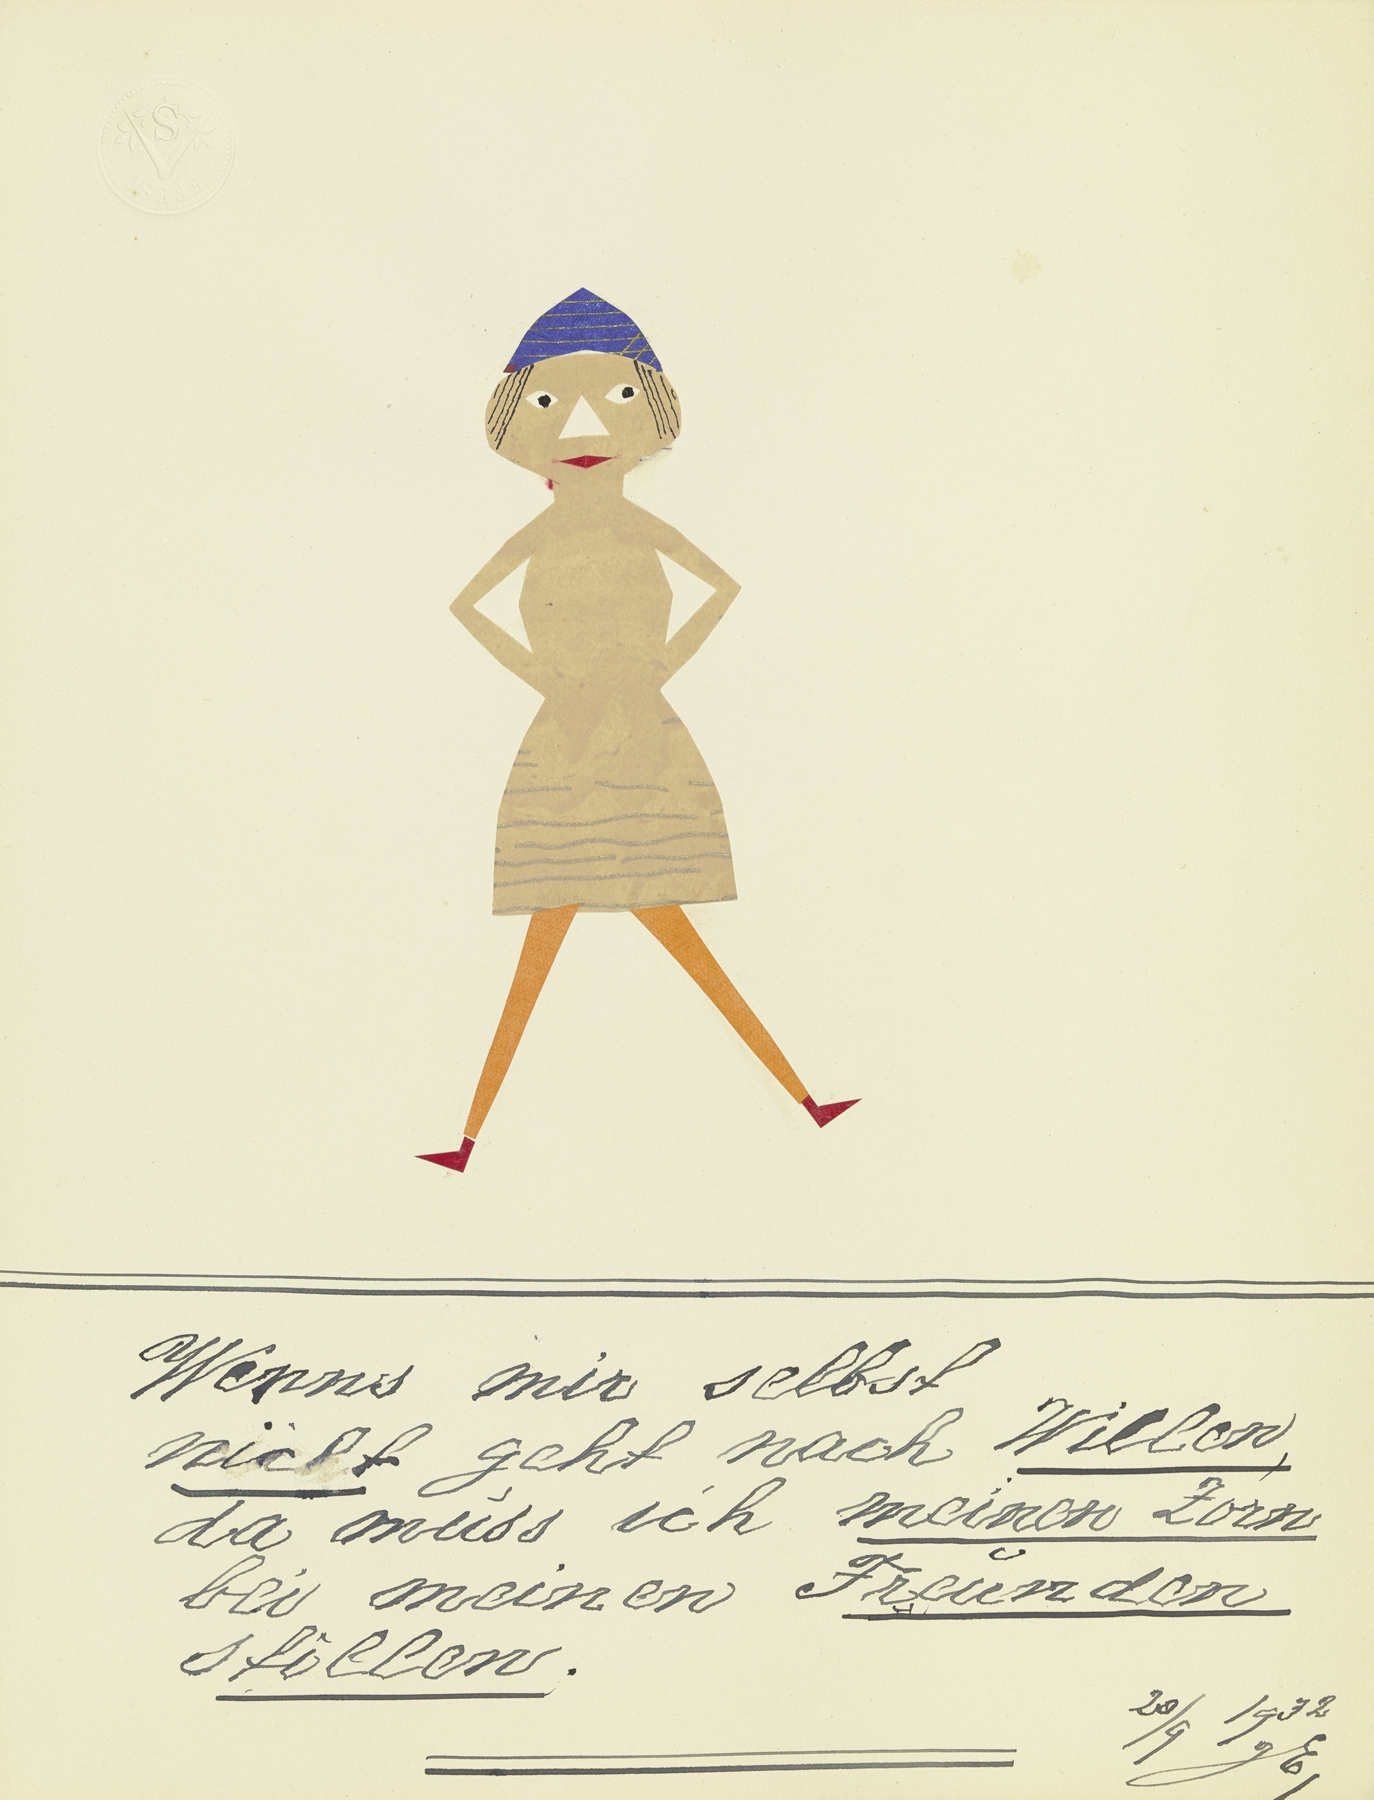 S
Wenns mir selbst
nicht geht nach Willen,
da müss ich meinen Zorn
bei meinen Freünden
stillen.
20/9 1932